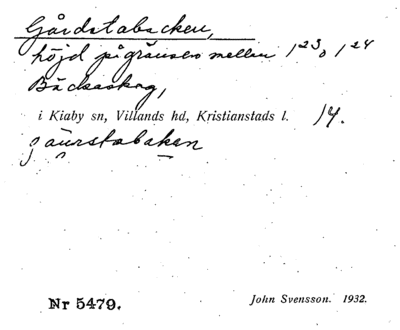 Gårdstabacken,
höjd på gränsen mellan 1²³ o 1²⁴
Bäckaskog,
i Kiaby sn, Villands hd, Kristianstads l. 14.
gäurstabakan
Nr 5479.
John Svensson. 1932.